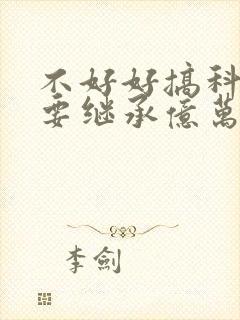 不好好搞科
要继承億萬
李劍